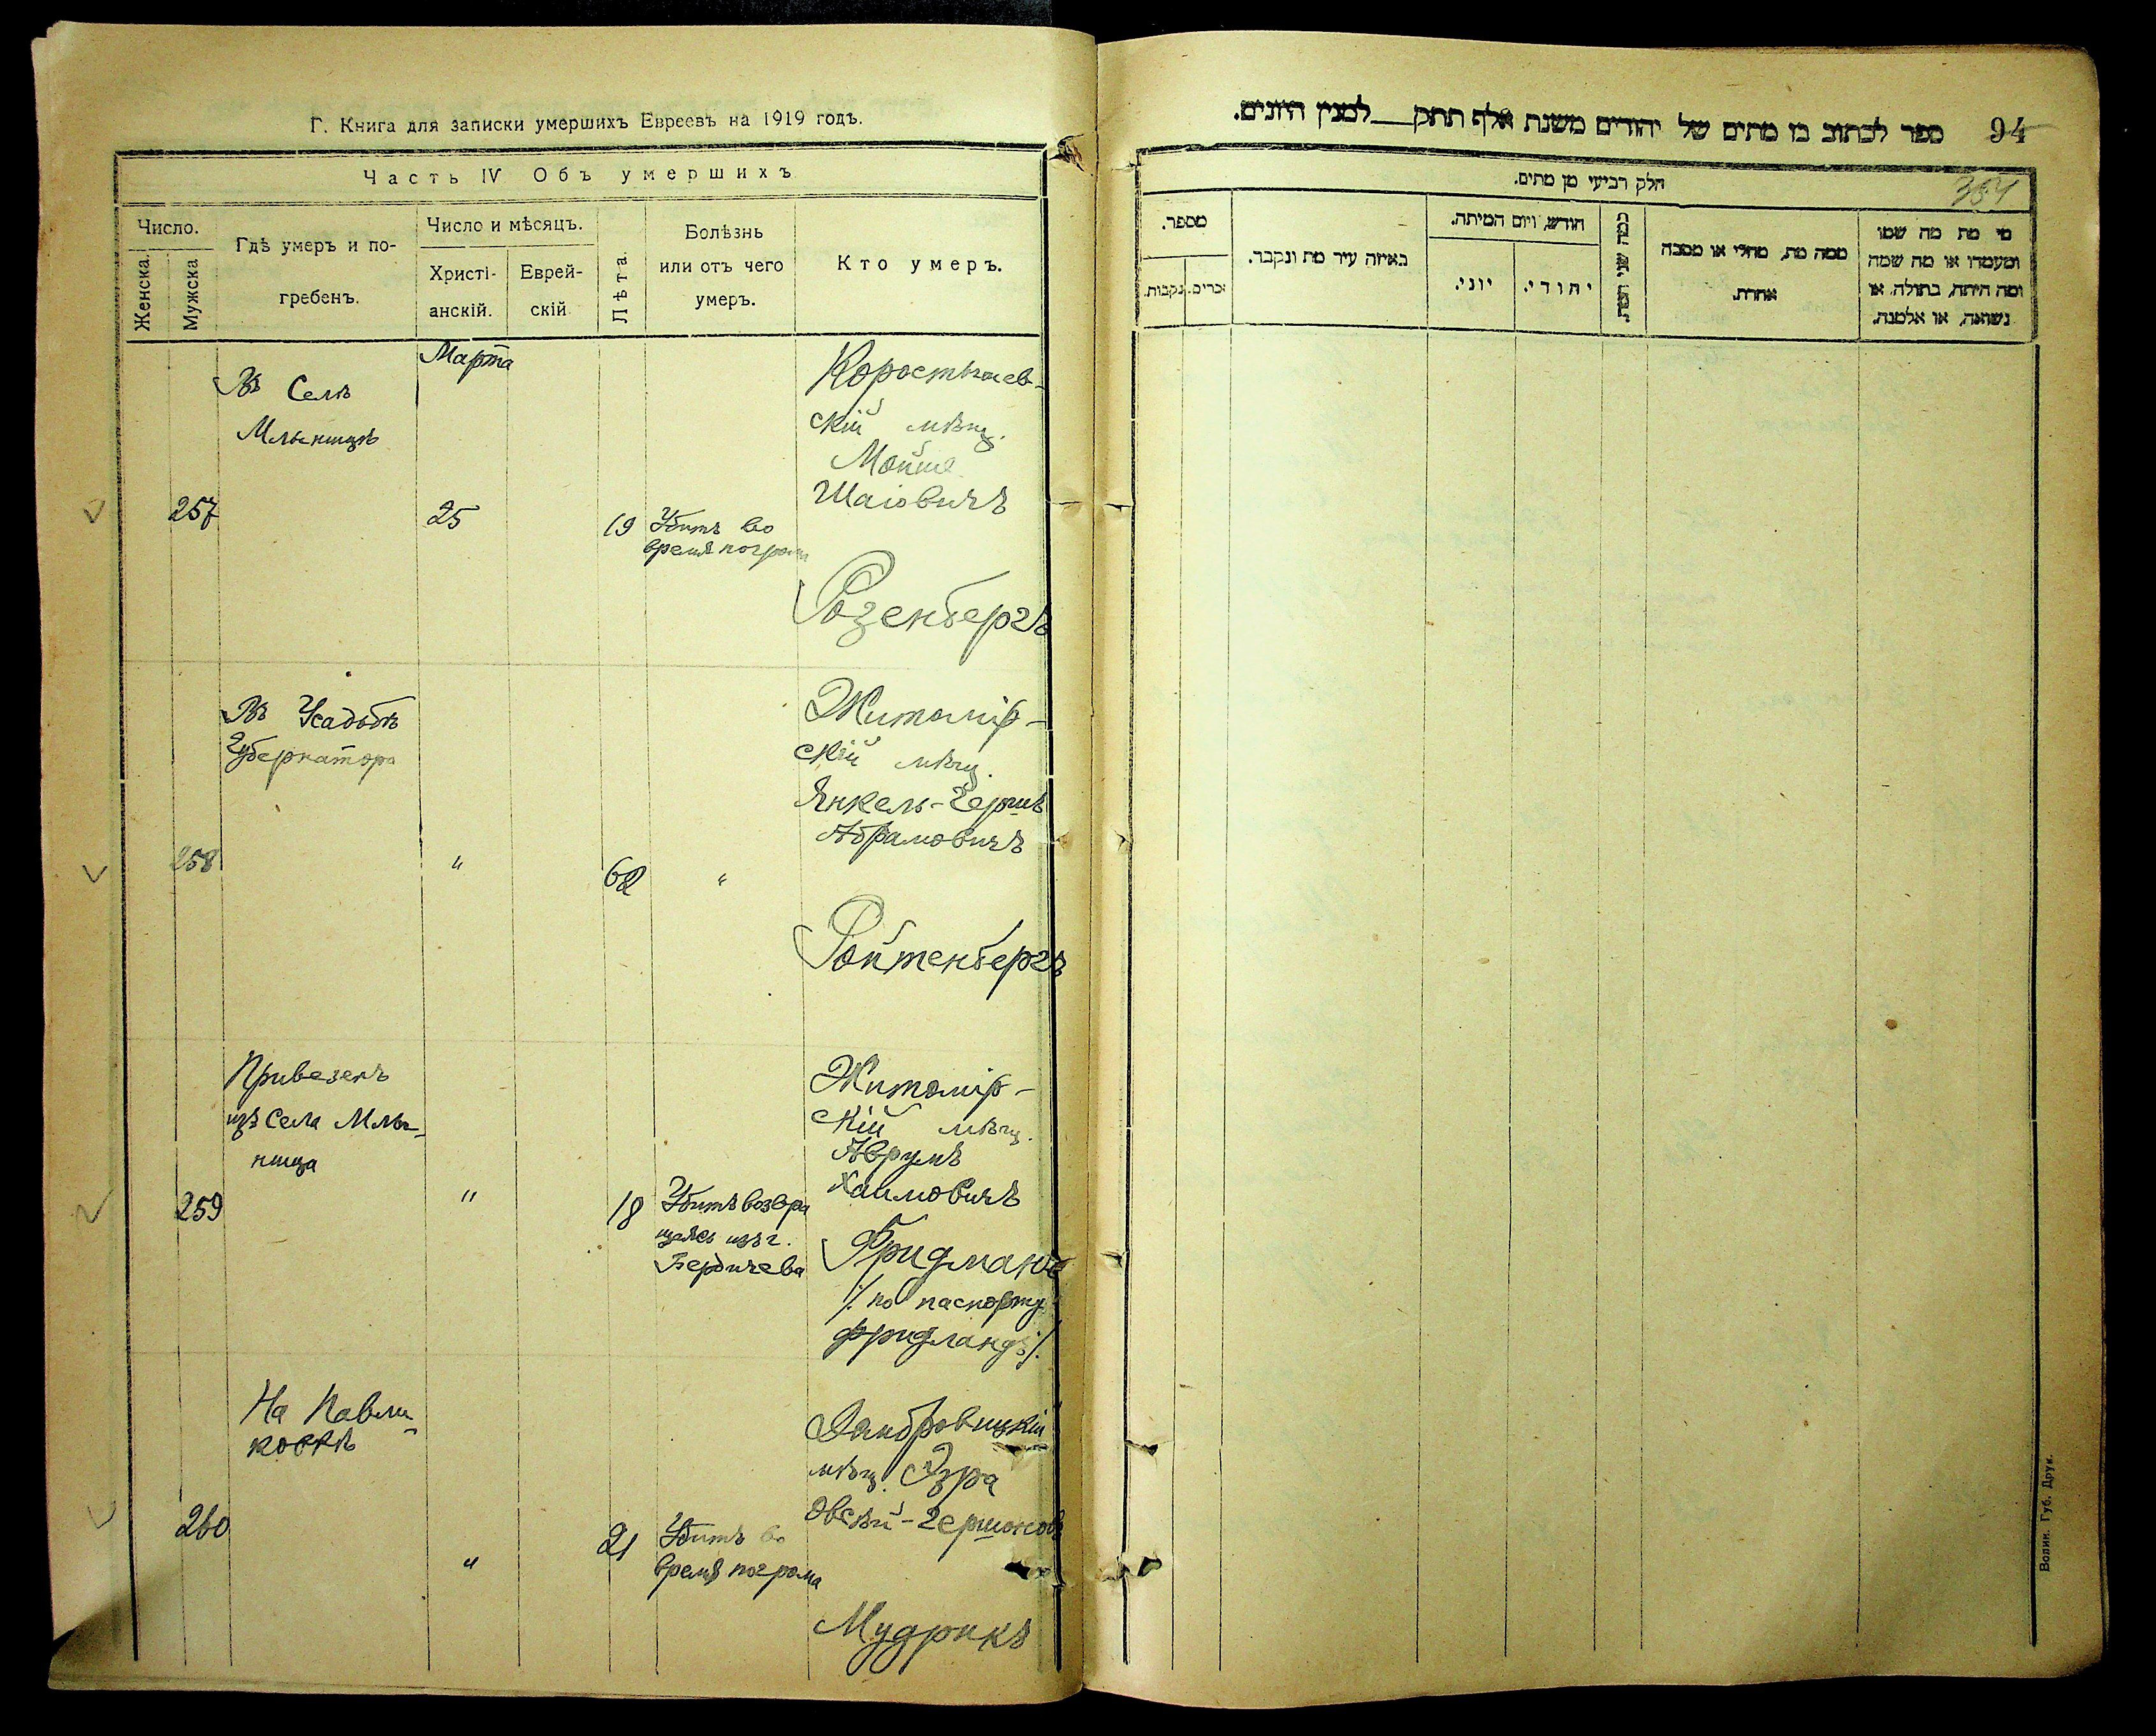 Г. Книга для записки умершихъ Евреевъ на 1919 годъ.
Часть IV Объ умершихъ
Число.
Женска
Мужска
Гдѣ умеръ и по-
гребенъ.
Число и мѣсяцъ.
Христі-
анскій.
Еврей-
скій
Лѣта
Болѣзнь
или отъ чего
умеръ.
Кто умеръ.
Въ Селѣ
Млынищѣ
Марта
257
25
19
Убитъ во
время погрома
Коростышев-
скій мѣщ.
Мойше
Шаіовичъ
Розенбергъ
Въ Усадьбѣ
Губернатора
258
"
62
"
Житомір-
скій мѣщ.
Янкель-Гершъ
Абрамовичъ
Ройтенбергъ
Привезенъ
изъ Села Млы-
нища
259
"
18
Убитъ возвра
щаясь изъ г.
Бердичева
Житомір-
скій мѣщ.
Аврумъ
Хаимовичъ
Фридманъ
/: по паспорту
Фридландъ :/
На Павли-
ковкѣ
260
"
21
Убитъ во
время погрома
Домбровицкій
мѣщ. Эзра
Овсѣй-Гершонов
Мудрикъ
94
ספר לכתוב בו מתים של יהודים משנת אלף תתק___למנין היונים.
364
חלק רביעי מן מתים.
מי מת מה שמו
ומעמדו או מה שמה
ומה היתה, בתולה, או
נשואה, או אלמנה.
ממה מת, מחלי או מסבה
אחרת.
כמה שני המת.
חודש, ויום המיתה.
יהודי.
יוני.
באיזה עיר מת ונקבר.
מספר.
זכרים.
נקבות.
Волин. Губ. Друк.